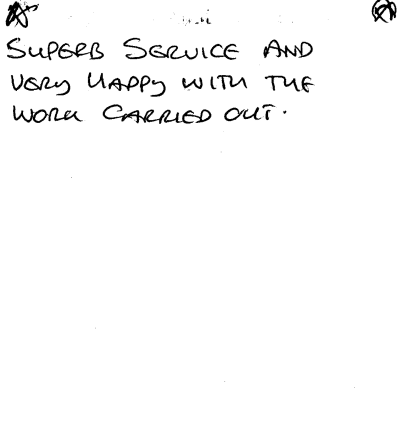 SUPERB SERVICE AND
VERY HAPPY WITH THE
WORK CARRIED OUT.